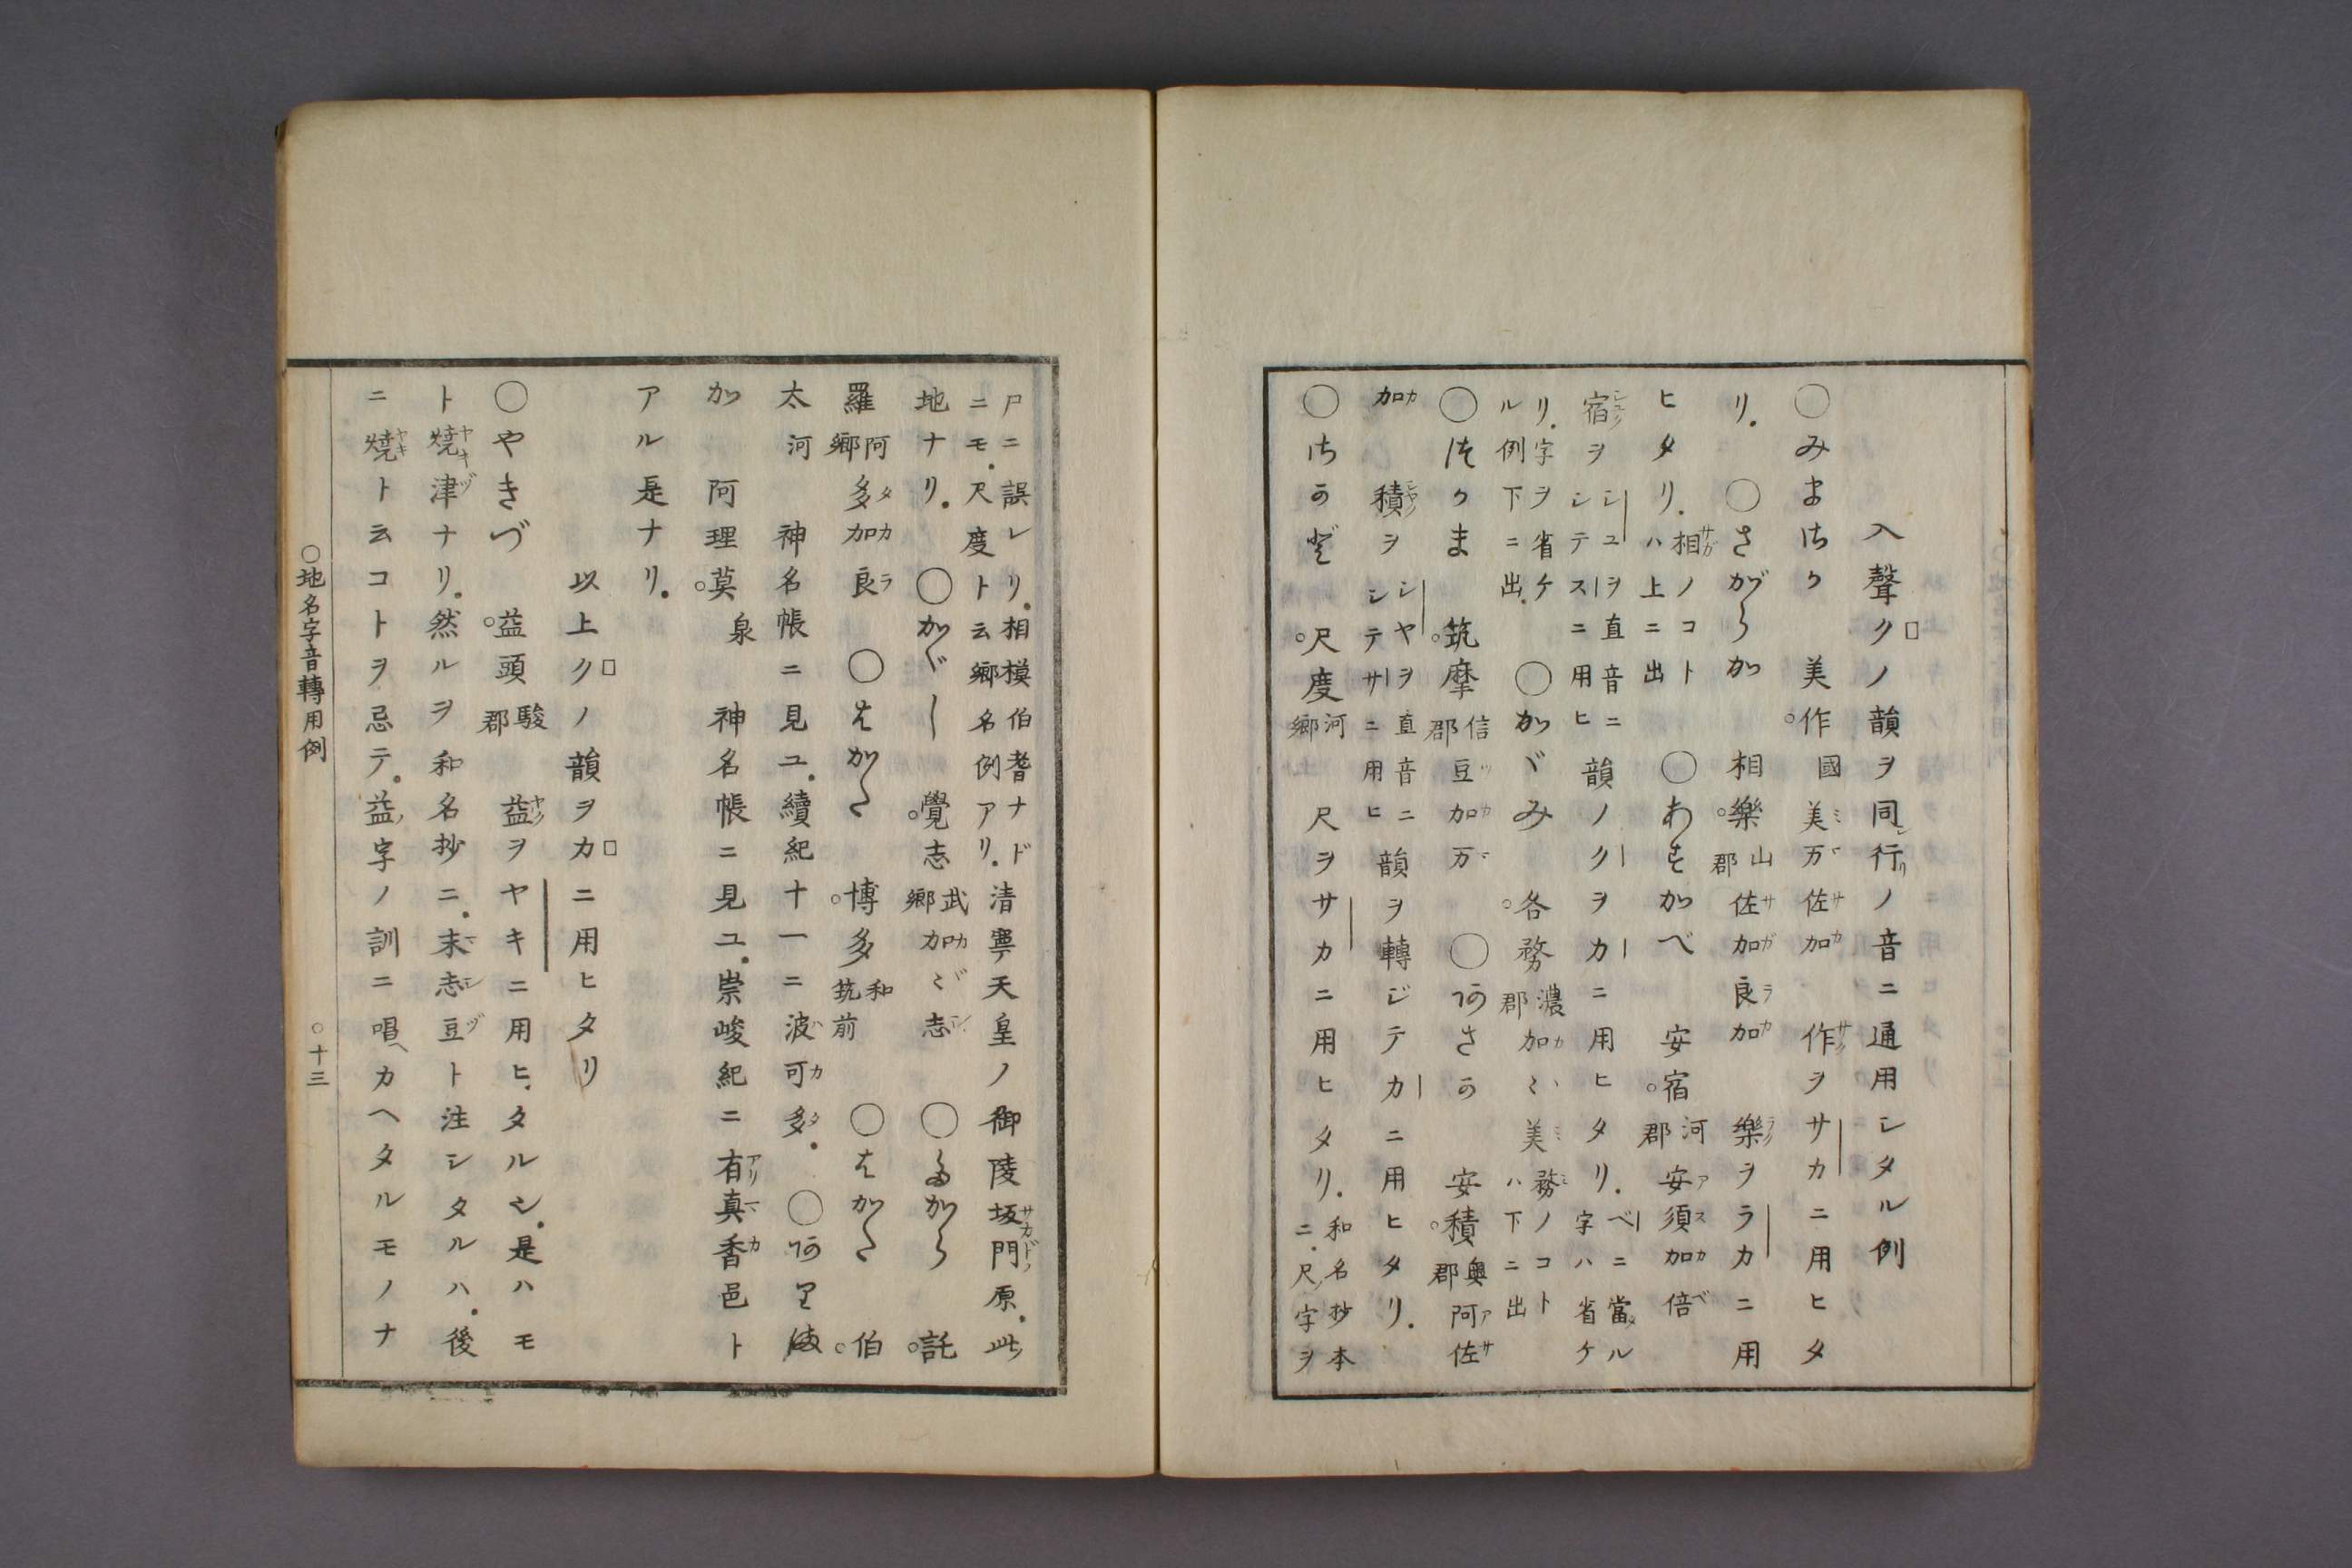 入聲クノ韻ヲ同行ノ音ニ通用シタル例
〇みまさか 美作國美万佐加 作ヲサカニ用ヒタ
リ。〇さがらか 相樂山郡佐加良加 樂ヲラカニ用
ヒタリ。相ノコトハ上ニ出 〇あすかべ 安宿河郡安須加倍
宿ヲシユヲ直音ニシテスニ用ヒ 韻ノクヲカニ用ヒタリ。べニ當ル字ハ省ケ
リ。字ヲ省ケル例下ニ出。 〇かゞみ 各務濃郡加ミ美務ノコトハ下ニ出
〇つかま 筑摩信郡豆加万 〇あさか 安積奥郡阿佐
加 積ヲシヤヲ直音ニシテサニ用ヒ韻ヲ轉ジテカニ用ヒタリ。
〇さかど 尺度河郷 尺ヲサカニ用ヒタリ。和名抄本ニ。尺字ヲ
尸ニ誤レリ。相模伯耆ナドニモ。尺度ト云郷名例アリ。清寧天皇ノ御陵坂門原。此
地ナリ。〇かゞし 覺志武郷加ゞ志 〇たから 託
羅阿郷多加良 〇はかた 博多和筑前 〇はかた 伯
太河 神名帳ニ見ユ。續紀十一ニ波可多。〇ありま
か 阿理莫泉 神名帳ニ見ユ。崇峻紀ニ有真香邑ト
アル是ナリ。
以上クノ韻ヲカニ用ヒタリ
〇やきづ 益頭駿郡 益ヲヤキニ用ヒタルシ。是ハモ
ト燒津ナリ。然ルヲ和名抄ニ。末志豆ト注シタルハ。後
ニ燒ト云コトヲ忌テ。益字ノ訓ニ唱ヘカヘタルモノナ
〇地名字音轉用例 〇十三